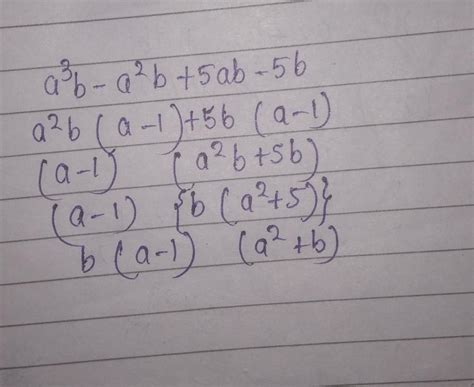 a³b - a²b + 5ab - 5b
a²b (a-1) + 5b (a-1)
(a-1) (a²b + 5b)
(a-1) {b (a²+5)}
b (a-1) (a² + b)